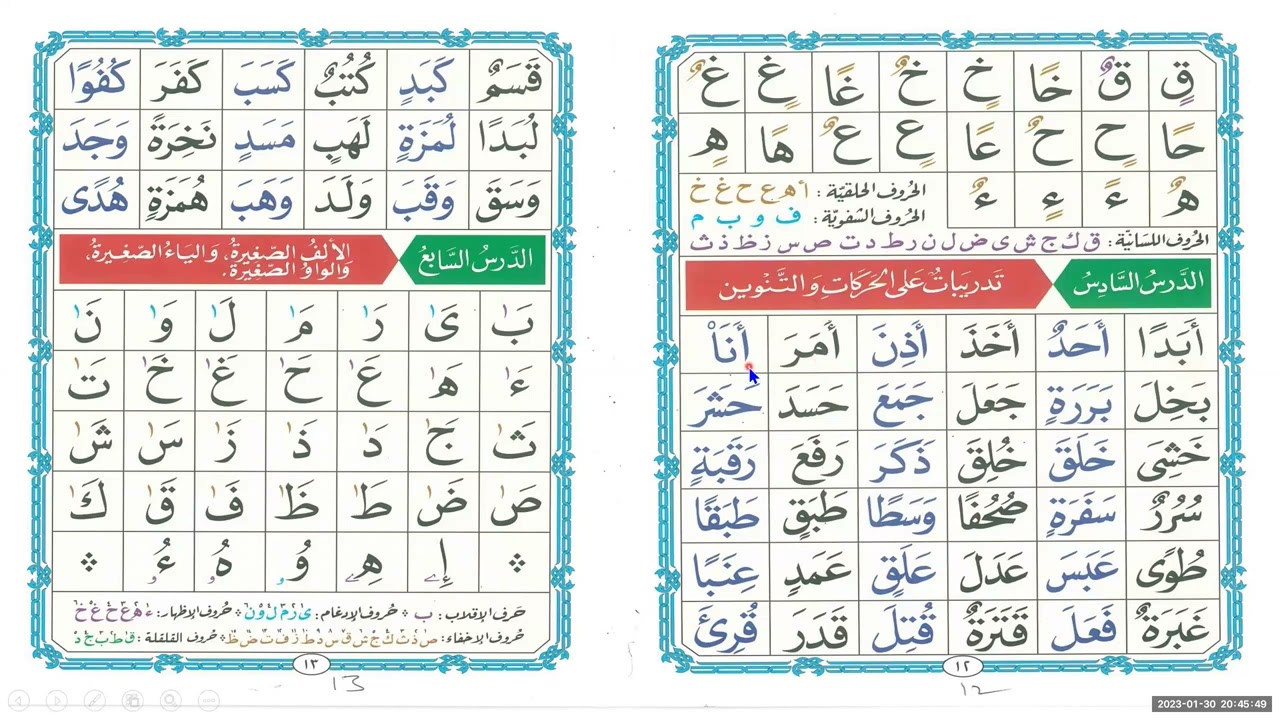 قٍ قٌ خًا خٍ خٌ غًا غٍ غٌ
حًا حٍ حٌ عًا عٍ عٌ هًا هٍ
هٌ ءً ءٍ ءٌ
الحُروف الحلقيّة : أ هـ ع ح غ خ
الحُروف الشفويّة : ف و ب م
الحُروف اللسانيّة : ق ك ج ش ي ض ل ن ر ط د ت ص س ز ظ ذ ث
الدَّرسُ السَّادِسُ تَدرِيبَاتٌ عَلَى الحَرَكَاتِ وَالتَّنْوِين
أَبَدًا أَحَدٌ أَخَذَ أَذِنَ أَمَرَ أَنَا۠
بَخِلَ بَرَرَةٍ جَعَلَ جَمَعَ حَسَدَ حَشَرَ
خَشِىَ خَلَقَ خُلِقَ ذَكَرَ رَفَعَ رَقَبَةٍ
سُرُرٌ سَفَرَةٍ صُحُفًا وَسَطًا طَبَقٍ طَبَقًا
طُوًى عَبَسَ عَدَلَ عَلَقٍ عَمَدٍ عِنَبًا
غَبَرَةٌ فَعَلَ قَتَرَةٌ قُتِلَ قَدَرَ قُرِئَ
١٢
١٢
قَسَمٌ كَبَدٍ كُتُبٌ كَسَبَ كَفَرَ كُفُوًا
لُبَدًا لُمَزَةٍ لَهَبٍ مَسَدٍ نَخِرَةً وَجَدَ
وَسَقَ وَقَبَ وَلَدَ وَهَبَ هُمَزَةٍ هُدًى
الدَّرسُ السَّابِعُ الألفُ الصَّغِيرَةُ، وَاليَاءُ الصَّغِيرَةُ،
وَالواوُ الصَّغِيرَةُ.
بَٰ يَٰ رَٰ مَٰ لَٰ وَٰ نَٰ
ءَٰ هَٰ عَٰ حَٰ غَٰ خَٰ تَٰ
ثَٰ جَٰ دَٰ ذَٰ زَٰ سَٰ شَٰ
صَٰ ضَٰ طَٰ ظَٰ فَٰ قَٰ كَٰ
إِۦ هِۦ وُۥ هُۥ ءُۥ
حَرف الإقلاب: ب * حُروف الإدغام: ي ر م ل و ن * حُروف الإظهار: ء هـ ع ح غ خ
حُروف الإخفاء: ص ذ ث ك ج ش ق س د ط ز ف ت ض ظ * حُروف القلقلة: ق ط ب ج د
١٣
13
2023-01-30 20:45:49